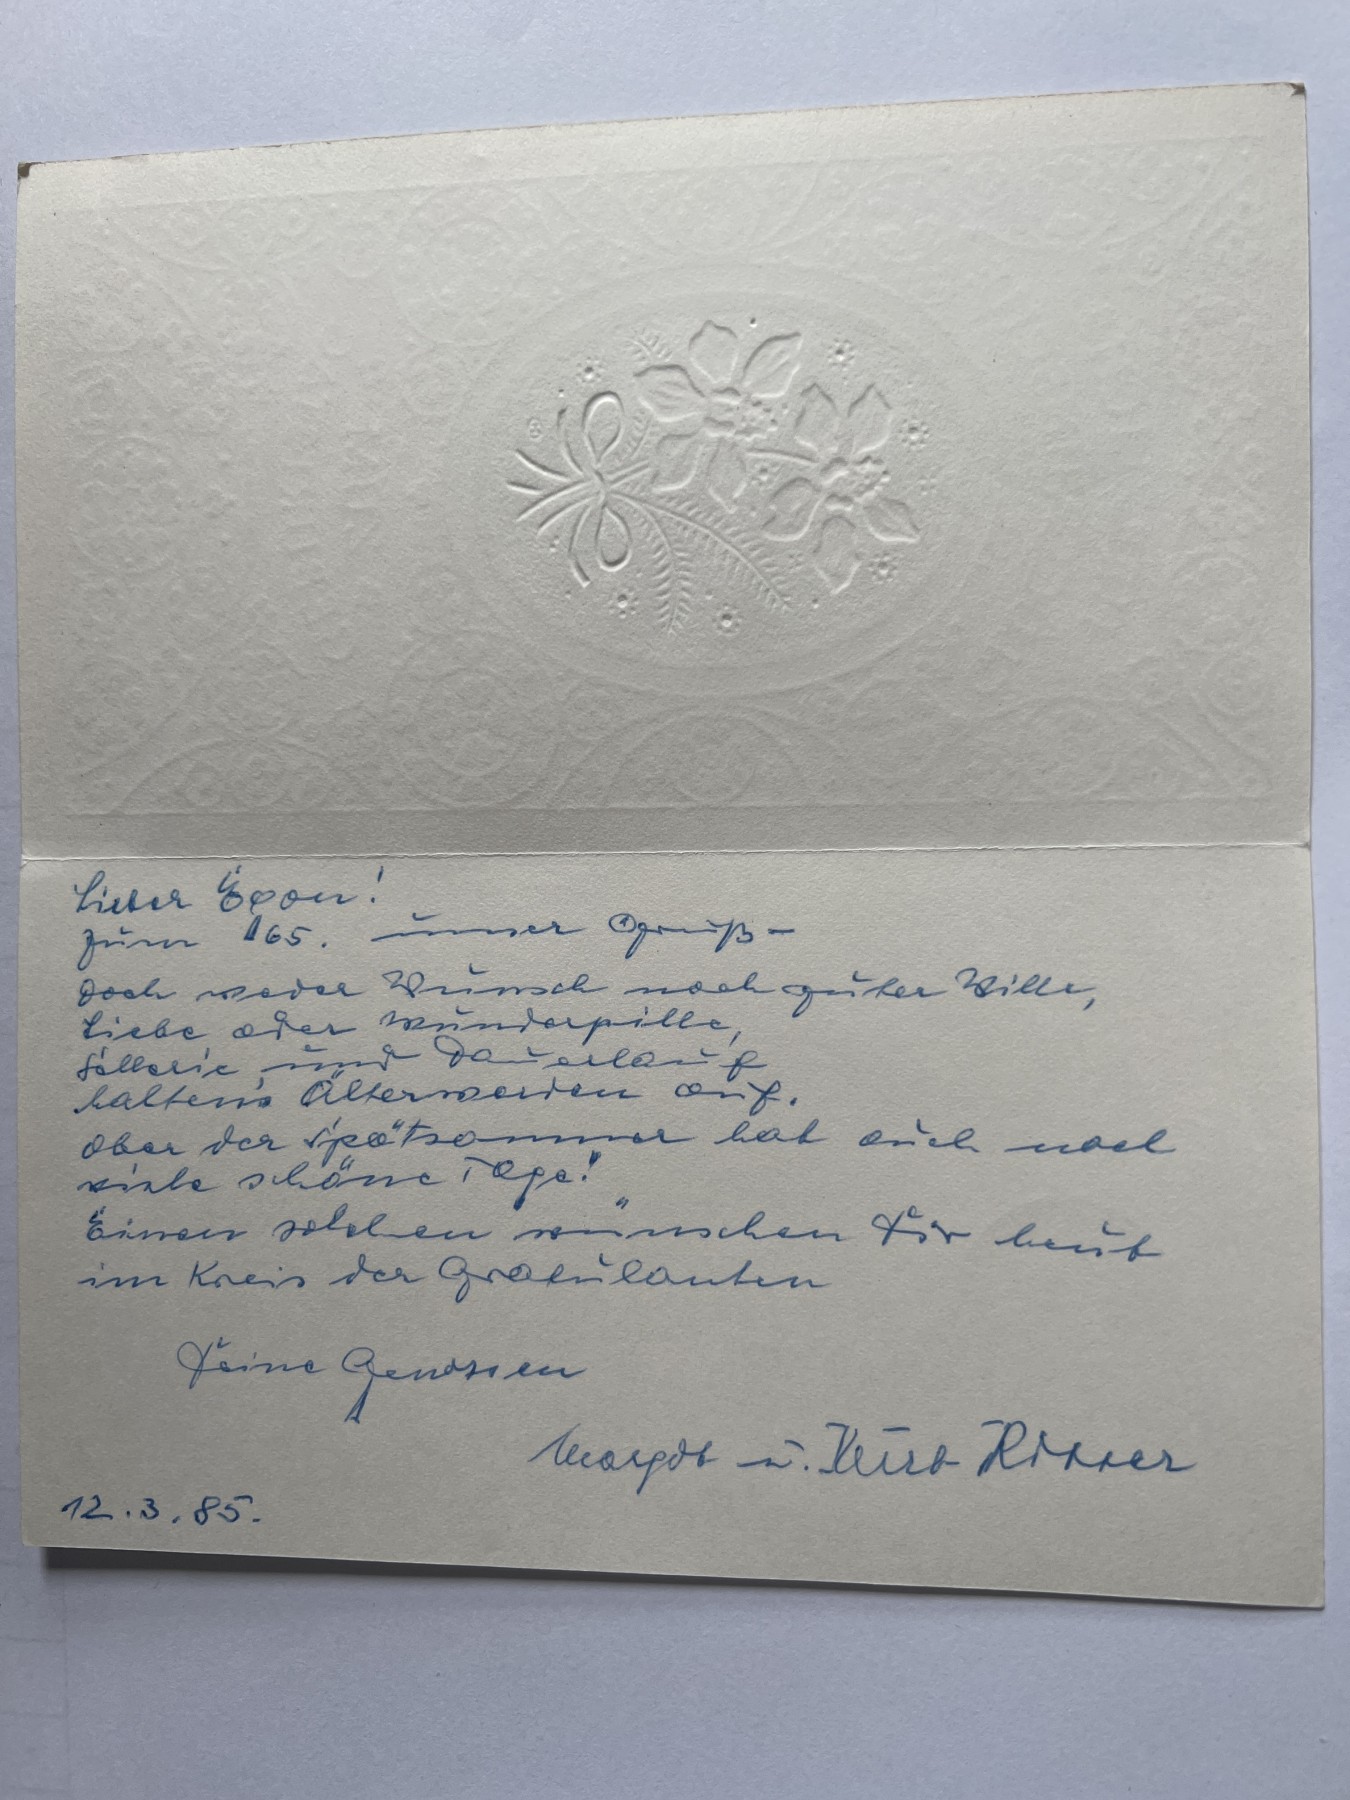 Lieber Egon!
Zum 65. unser Gruß –
Doch weder Wunsch noch guter Wille,
Liebe oder Wunderpille,
Sellerie und Dauerlauf
halten's Älterwerden auf.
Aber der Spätsommer hat auch noch
viele schöne Tage!
Einen solchen wünschen Dir heut
im Kreis der Gratulanten
Deine Genossen
Margot u. Kurt
12.3.85.